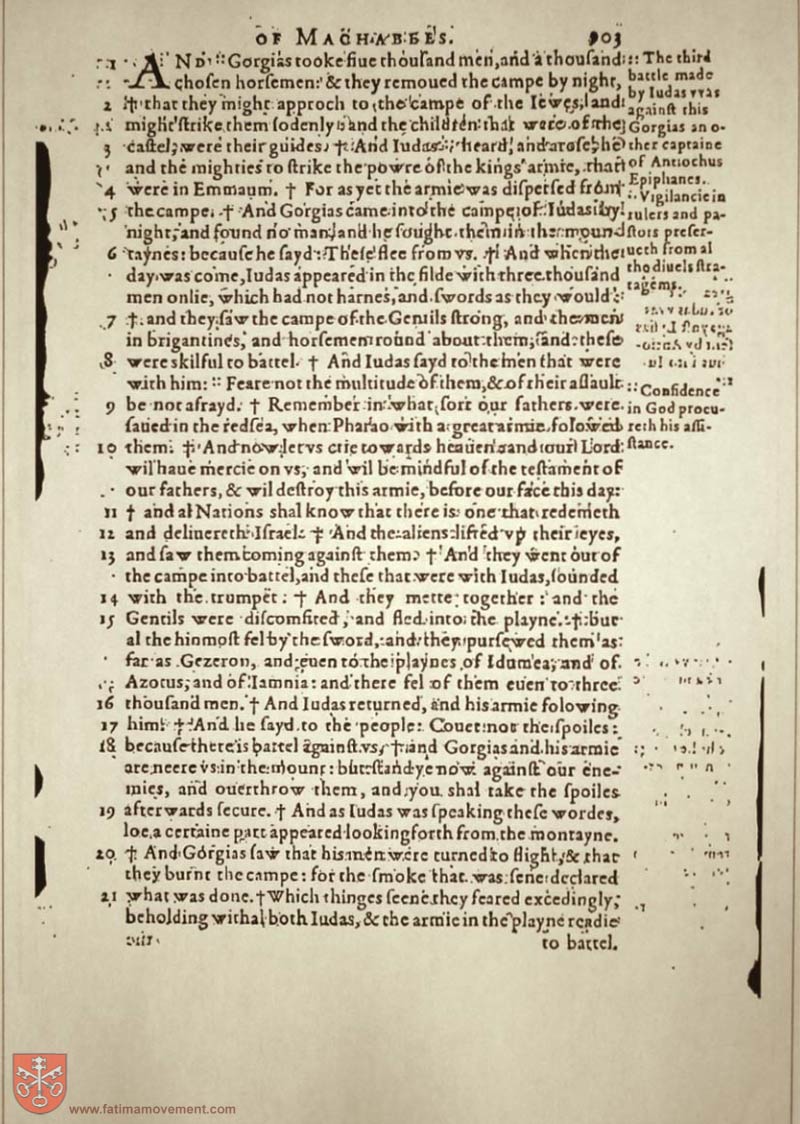 OF MACHABEES. 903
1 AND Gorgias tooke fiue thouſand men, and a thouſand
choſen horſemen: & they remoued the campe by night,
2 † that they might approch to the campe of the Iewes, and
might ſtrike them ſodenly: and the children that were of the
3 caſtel, were their guides. † And Iudas heard, and aroſe he
and the mighties to ſtrike the powre of the kings armie, that
4 were in Emmaum. † For as yet the armie was diſperſed from
5 the campe. † And Gorgias came into the campe of Iudas by
night, and found no man, and he ſought them in the moun-
6 taynes: becauſe he ſayd: Theſe flee from vs. † And when the
day was come, Iudas appeared in the filde with three thouſand
men onlie, which had not harnes, and ſwords as they would:
7 † and they ſaw the campe of the Gentils ſtrong, and the men
in brigantines, and horſemen round about them, and theſe
8 were skilful to battel. † And Iudas ſayd to the men that were
with him: :: Feare not the multitude of them, & of their aſſault
9 be not afrayd. † Remember in what ſort our fathers were
ſaued in the redſea, when Pharao with a great armie folowed
10 them. † And now let vs crie towards heauen: and our Lord
wil haue mercie on vs, and wil be mindful of the teſtament of
our fathers, & wil deſtroy this armie, before our face this day:
11 † and al Nations shal know that there is one that redemeth
12 and deliuereth Iſrael. † And the aliens lifted vp their eyes,
13 and ſaw them coming againſt them. † And they went out of
the campe into battel, and theſe that were with Iudas, ſounded
14 with the trumpet: † And they mette together: and the
15 Gentils were diſcomfited, and fled into the playne. † but
al the hinmoſt fel by the ſword, and they purſewed them as
far as Gezeron, and euen to the playnes of Idumea, and of
Azotus, and of Iamnia: and there fel of them euen to three
16 thouſand men. † And Iudas returned, and his armie folowing
17 him. † And he ſayd to the people: Couet not the ſpoiles:
18 becauſe there is battel againſt vs, † and Gorgias and his armie
are neere vs in the mount: but ſtand ye now againſt our ene-
mies, and ouerthrow them, and you shal take the ſpoiles
19 afterwards ſecure. † And as Iudas was ſpeaking theſe wordes,
loe a certaine part appeared looking forth from the montayne.
20 † And Gorgias ſaw that his men were turned to flight, & that
they burnt the campe: for the ſmoke that was ſene declared
21 what was done. † Which thinges ſeene they feared excedingly,
beholding withal both Iudas, & the armie in the playne readie
to battel.
:: The third
battle made
by Iudas was
againſt this
Gorgias an o-
ther captaine
of Antiochus
Epiphanes.
:: Vigilancie in
rulers and pa-
ſtors preſer-
ueth from al
the diuels ſtra-
tagems.
:: Confidence
in God procu-
reth his aſſi-
ſtance.
www.fatimamovement.com